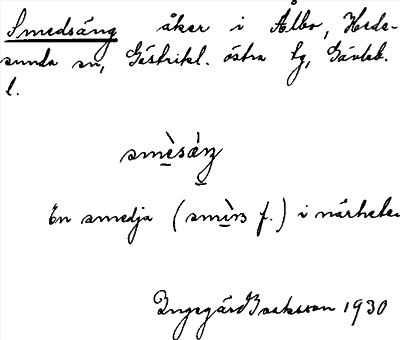 Smedsäng åker i Ålbo, Heds-
unda sn, Gästrikl. östra tg, Gävleb.
l.
smèsáŋ
En smedja (smìɴ f.) i närheten
Ingegärd Isaksson 1930